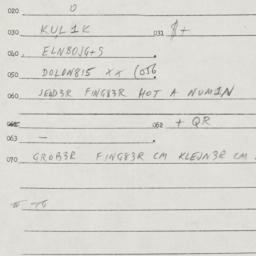 020. 0
030 KUL1K 031 $+
040 ELNBOJG+S
050 DOLON815 xx (056
060 JED3R FING83R HOT A NUM1N
062 + QR
063 —
070 GROB3R FING83R CM KLEJN3R CM